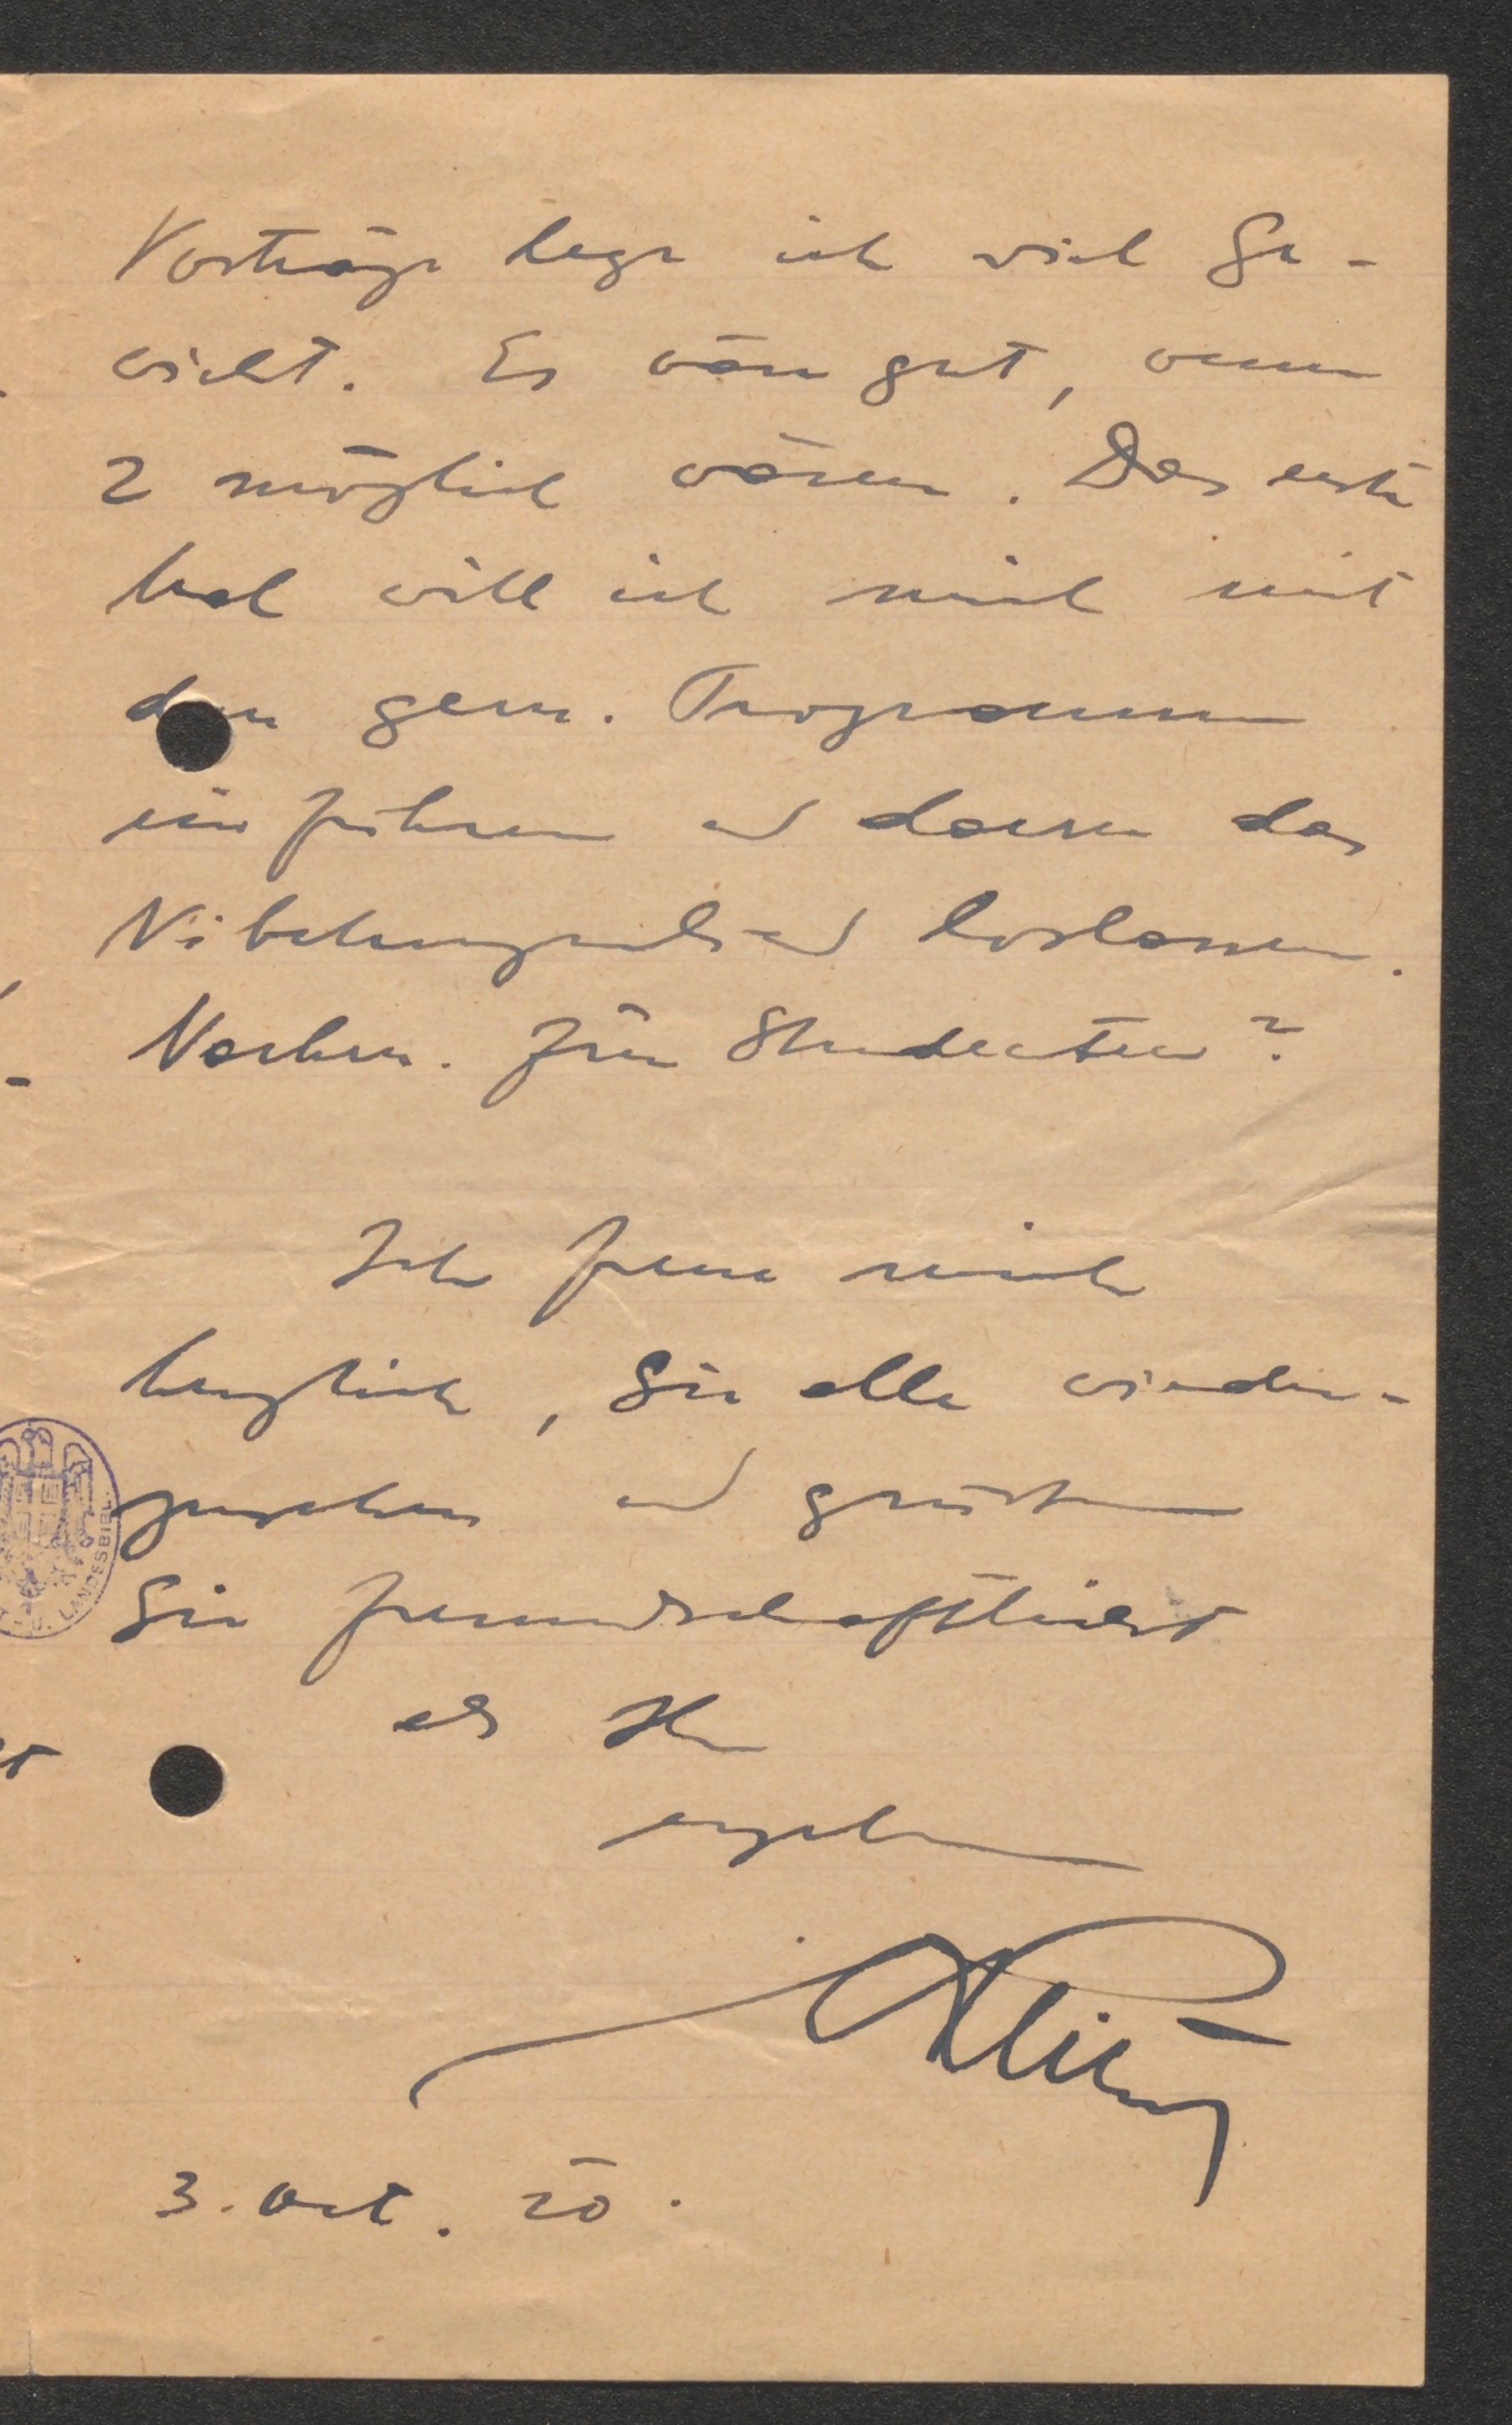 Vorträge lege ich viel Ge-
wicht. Es wäre gut, wenn
2 möglich wären. Das erste
Mal will ich mich mit
dem gem. Programm
einführen und dann das
Nibelungenlied loslassen.
Nachm. für Studenten?
Ich freue mich
herzlich, Sie alle wieder-
zusehen und grüsse
Sie freundschaftlichst
als Ihr
ergebener
3. Oct. 20.
U. LANDESBIBL.